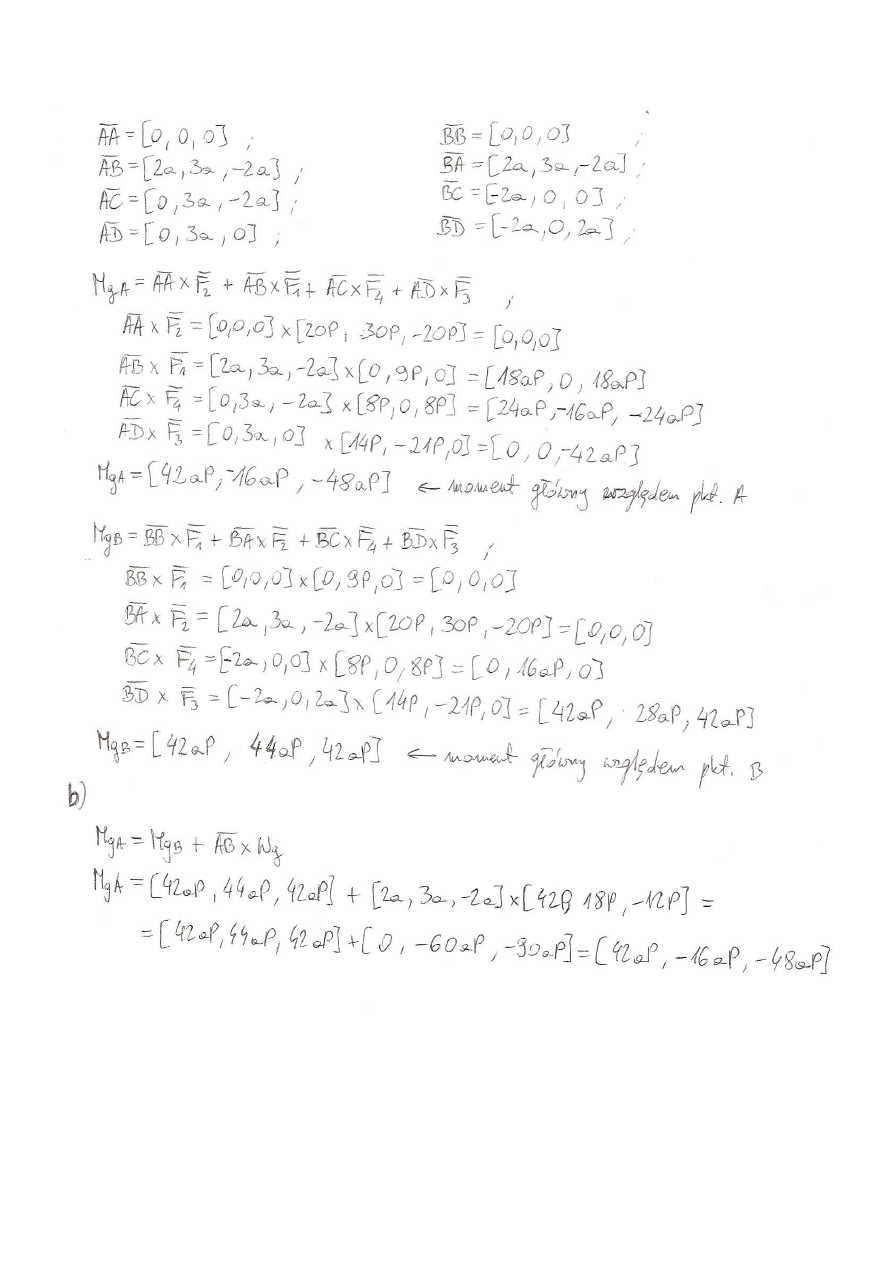 A̅A̅ = [0, 0, 0] ;
A̅B̅ = [2a, 3a, -2a] ;
A̅C̅ = [0, 3a, -2a] ;
A̅D̅ = [0, 3a, 0] ;
B̅B̅ = [0, 0, 0] ;
B̅A̅ = [2a, 3a, -2a] ;
B̅C̅ = [-2a, 0, 0] ;
B̅D̅ = [-2a, 0, 2a] ;
MgA = A̅A̅ × F̅₂ + A̅B̅ × F̅₁ + A̅C̅ × F̅₄ + A̅D̅ × F̅₃ ;
A̅A̅ × F̅₂ = [0,0,0] × [20P, 30P, -20P] = [0,0,0]
A̅B̅ × F̅₁ = [2a, 3a, -2a] × [0, 9P, 0] = [18aP, 0, 18aP]
A̅C̅ × F̅₄ = [0, 3a, -2a] × [8P, 0, 8P] = [24aP, -16aP, -24aP]
A̅D̅ × F̅₃ = [0, 3a, 0] × [14P, -21P, 0] = [0, 0, -42aP]
MgA = [42aP, -16aP, -48aP] ← moment główny względem pkt. A
MgB = B̅B̅ × F̅₁ + B̅A̅ × F̅₂ + B̅C̅ × F̅₄ + B̅D̅ × F̅₃ ;
B̅B̅ × F̅₁ = [0,0,0] × [0, 9P, 0] = [0, 0, 0]
B̅A̅ × F̅₂ = [2a, 3a, -2a] × [20P, 30P, -20P] = [0, 0, 0]
B̅C̅ × F̅₄ = [-2a, 0, 0] × [8P, 0, 8P] = [0, 16aP, 0]
B̅D̅ × F̅₃ = [-2a, 0, 2a] × [14P, -21P, 0] = [42aP, 28aP, 42aP]
MgB = [42aP, 44aP, 42aP] ← moment główny względem pkt. B
b)
MgA = MgB + A̅B̅ × Wg
MgA = [42aP, 44aP, 42aP] + [2a, 3a, -2a] × [42P, 18P, -12P] =
= [42aP, 44aP, 42aP] + [0, -60aP, -90aP] = [42aP, -16aP, -48aP]